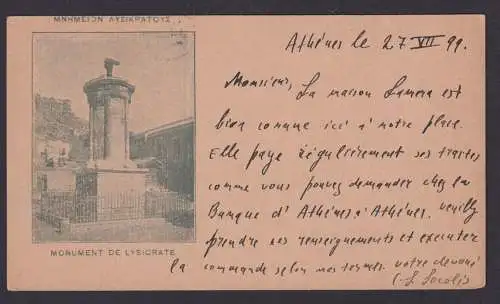 ΜΝΗΜΕΙΟΝ ΛΥΣΙΚΡΑΤΟΥΣ
MONUMENT DE LYSICRATE
Athénes le 27 VII 99.
Monsieur, La maison Lamera est
bien connue ici à notre place.
Elle paye régulièrement ses traites
comme vous pouvez demander chez la
Banque d'Athénes à Athénes. Veuillez
prendre vos renseignements et executer
la commande selon nos termes. votre devoué